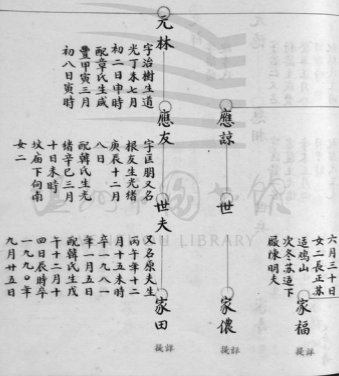 六月三十日
女二長正苏
适鳴山
次冬苏适下
嚴陳明夫
家福
應諒
世
家儂
元林
字治樹生道
光丁未七月
初二日申時
配章氏生咸
豐甲寅三月
初八日寅時
應友
字匡朋又名
根友生光绪
庚辰十二月
八日
配韓氏生光
绪辛巳三月
十日未時
坟庙下向南
女二
世夫
又名原夫生
丙午年十二
月十五未時
卒一九八一
年一月五日
配韓氏生戊
午十二月十
四日辰時卒
一九九〇年
九月廿五日
家田
LIBRARY